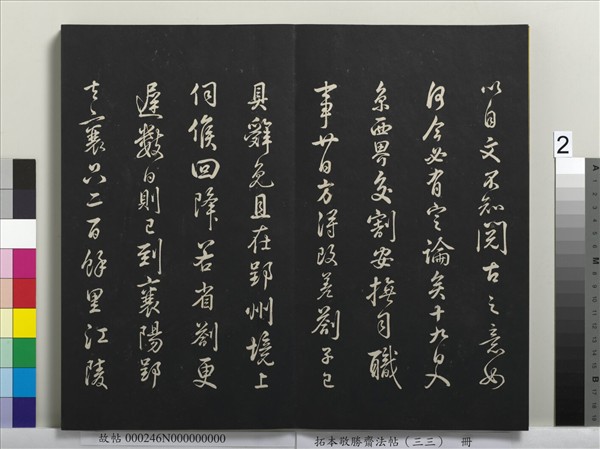 以自文不知閱古之意如
何今必有定論矣十九日入
京西界交割安撫司職
事廿日方得改差劄子已
具辭免且在郢州境上
伺候回降若省劄更
遲數日則已到襄陽郢
去襄只二百餘里江陵
2
A
M
B
故帖 000246N000000000
拓本敬勝齋法帖(三三) 冊